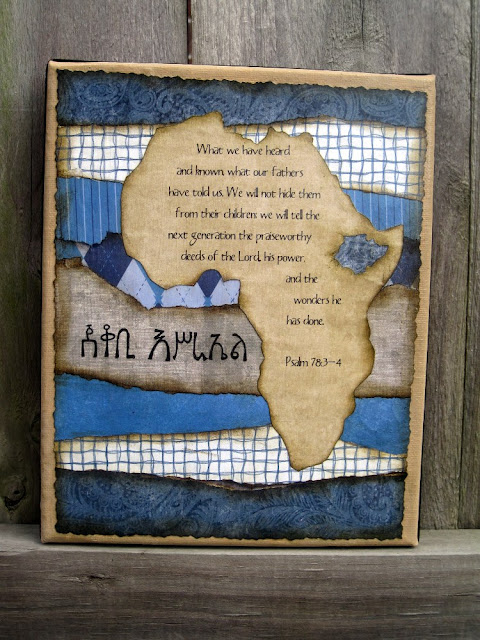 What we have heard
and known, what our fathers
have told us. We will not hide them
from their children; we will tell the
next generation the praiseworthy
deeds of the Lord, his power,
and the
wonders he
has done.
Psalm 78:3-4
እሥራኤል